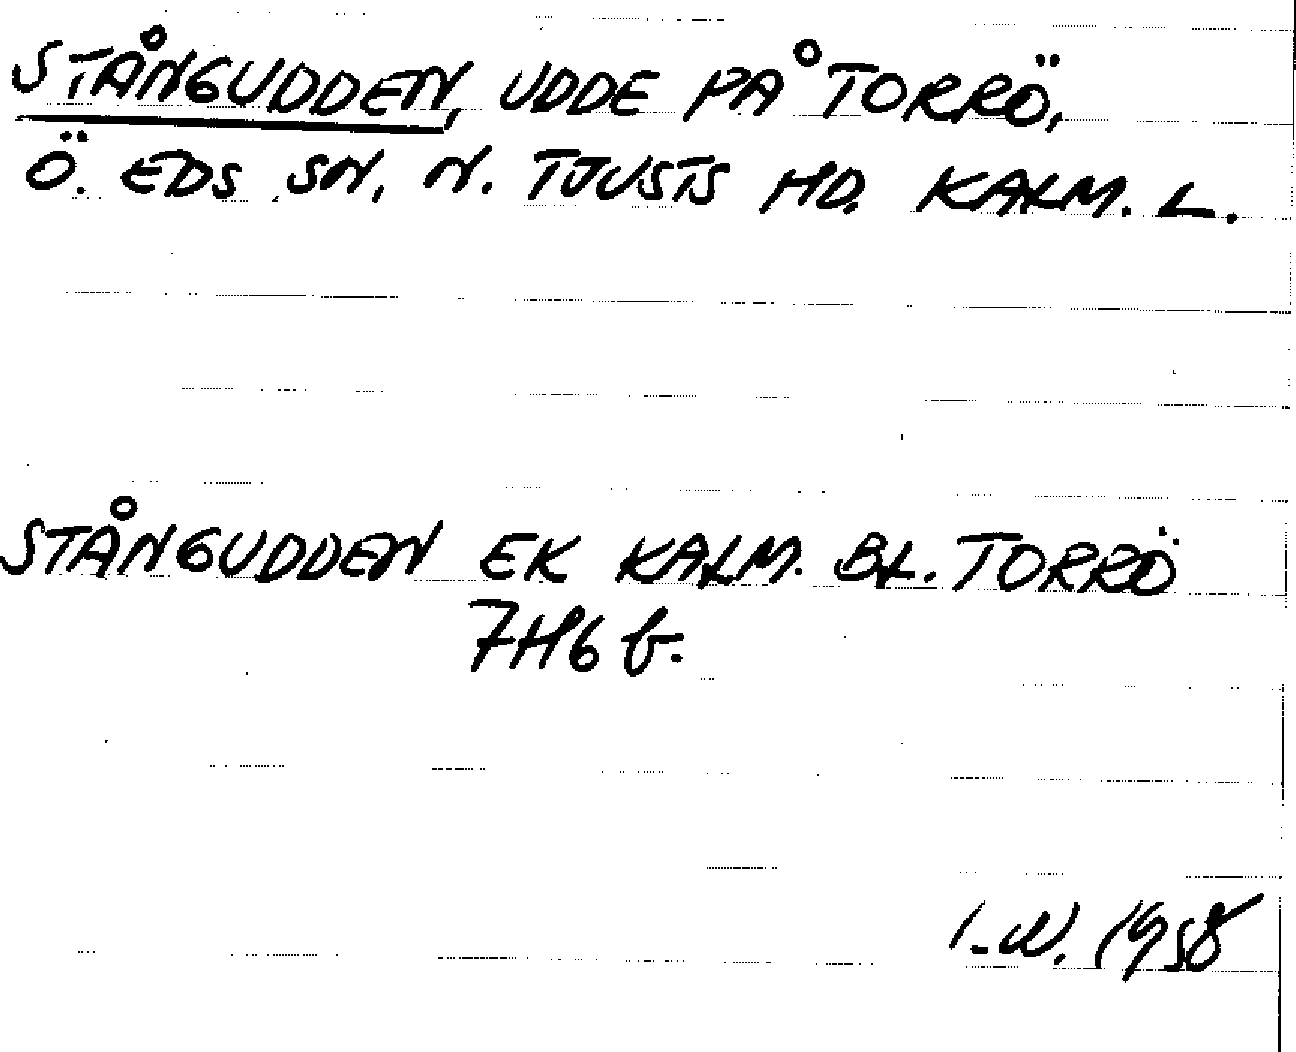 STÅNGUDDEN, UDDE PÅ TORRÖ,
Ö. EDS SN, N. TJUSTS HD. KALM. L.
STÅNGUDDEN EK KALM. BL. TORRÖ
7H6 b.
1958